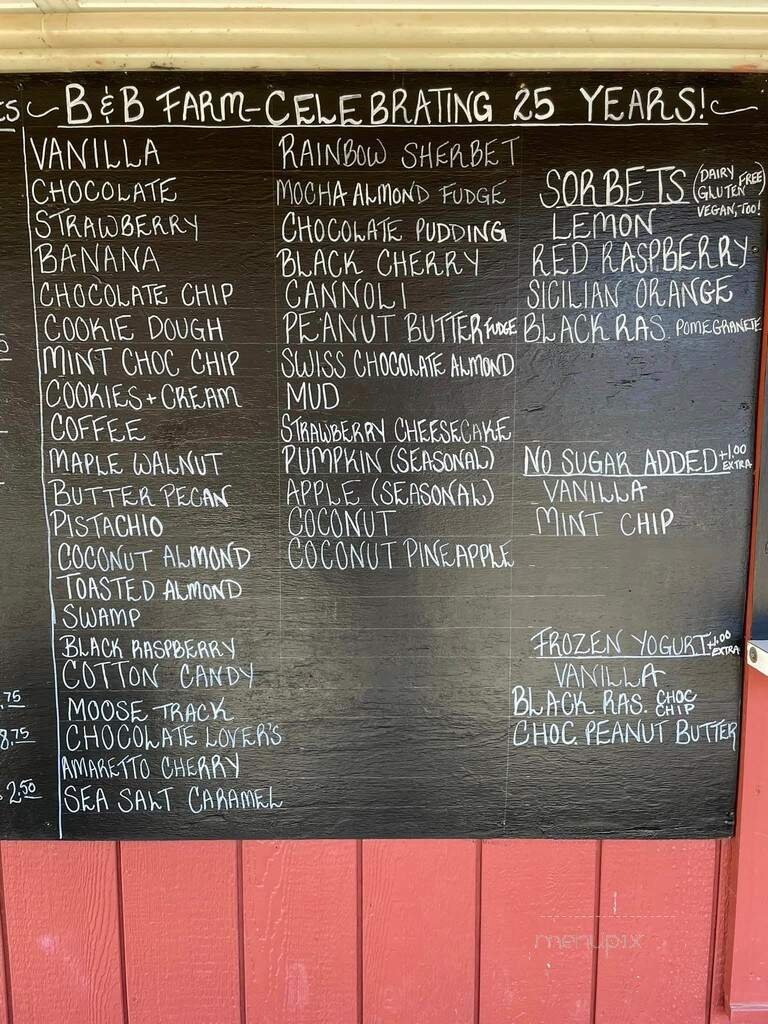 ES
B & B FARM-CELEBRATING 25 YEARS!
VANILLA
CHOCOLATE
STRAWBERRY
BANANA
CHOCOLATE CHIP
COOKIE DOUGH
MINT CHOC CHIP
COOKIES + CREAM
COFFEE
MAPLE WALNUT
BUTTER PECAN
PISTACHIO
COCONUT ALMOND
TOASTED ALMOND
SWAMP
BLACK RASPBERRY
COTTON CANDY
MOOSE TRACK
CHOCOLATE LOVER'S
AMARETTO CHERRY
SEA SALT CARAMEL
RAINBOW SHERBET
MOCHA ALMOND FUDGE
CHOCOLATE PUDDING
BLACK CHERRY
CANNOLI
PEANUT BUTTER FUDGE
SWISS CHOCOLATE ALMOND
MUD
STRAWBERRY CHEESECAKE
PUMPKIN (SEASONAL)
APPLE (SEASONAL)
COCONUT
COCONUT PINEAPPLE
SORBETS (DAIRY FREE)
GLUTEN
VEGAN, TOO!
LEMON
RED RASPBERRY
SICILIAN ORANGE
BLACK RAS. POMEGRANETE
NO SUGAR ADDED +1.00 EXTRA
VANILLA
MINT CHIP
FROZEN YOGURT +1.00 EXTRA
VANILLA
BLACK RAS. CHOC CHIP
CHOC. PEANUT BUTTER
.75
8.75
2.50
menupix